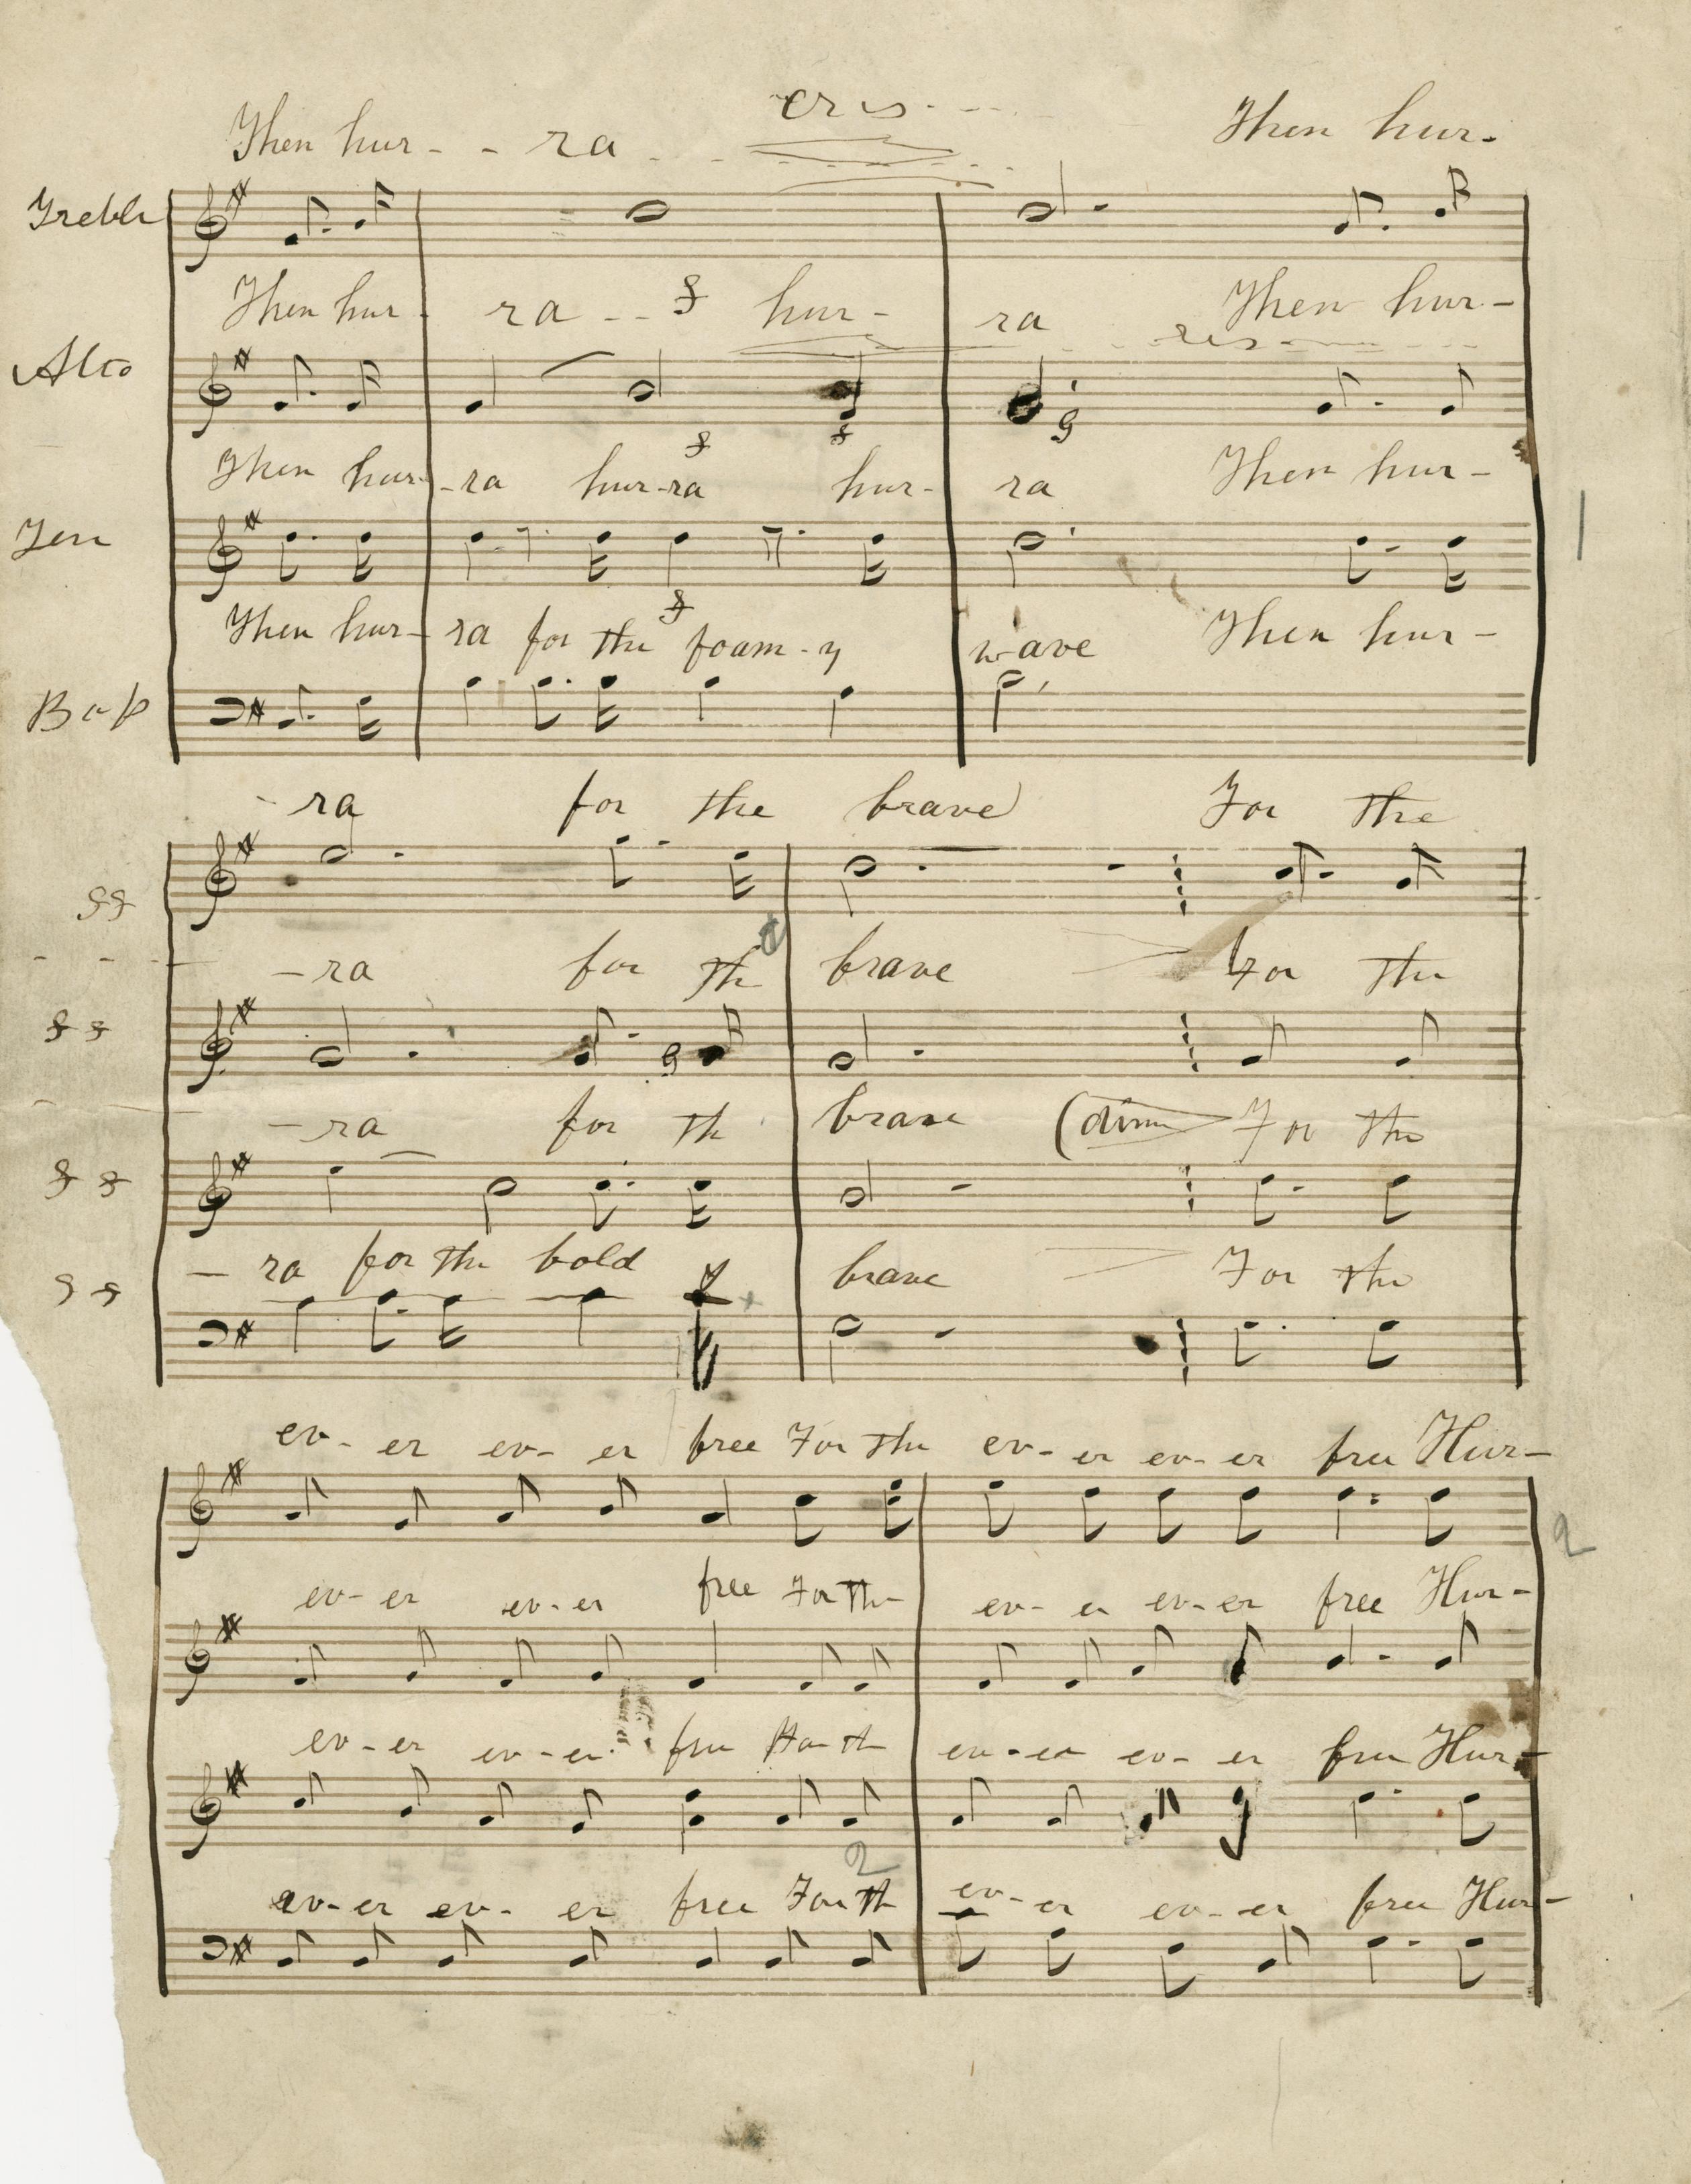 cres - - -
Then hur - - ra - - - Then hur-
Treble
Then hur - ra - - f hur - ra Then hur-
cres - - -
Alto
f f
g
Then hur - ra hur-ra hur- ra Then hur-
Ten
f
Then hur- ra for the foam-y wave Then hur-
Bass
1
-ra for the brave For the
ff
-ra for the brave For the
ff
g
-ra for th brave (dim For the
ff
- ra for the bold brave For the
ff
ev- er ev- er free For the ev- er ev- er free Hur-
2
ev- er ev- er free For the ev- er ev- er free Hur-
ev - er ev - er free For th ev - er ev - er free Hur-
2
ev- er ev- er free For th ev- er ev- er free Hur-